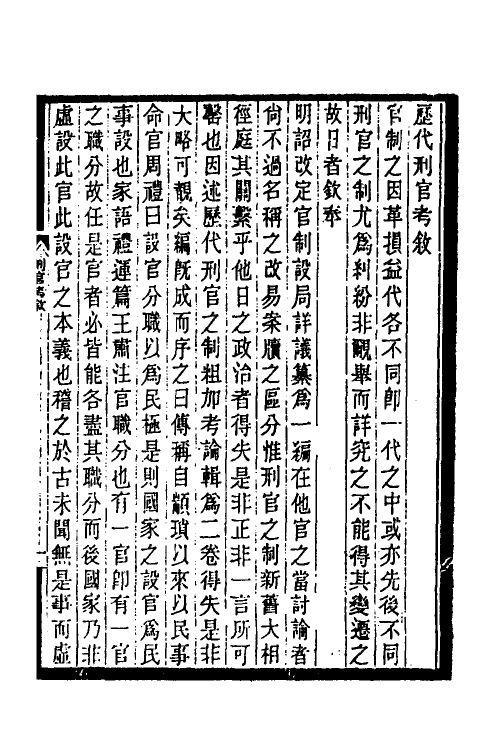 歷代刑官考敘
官制之因革損益代各不同卽一代之中或亦先後不同
刑官之制尤爲糾紛非覼舉而詳究之不能得其變遷之
故日者欽奉
明詔改定官制設局詳議纂爲一編在他官之當討論者
尙不過名稱之改易案牘之區分惟刑官之制新舊大相
徑庭其關繫乎他日之政治者得失是非正非一言所可
罄也因述歷代刑官之制粗加考論輯爲二卷得失是非
大略可覩矣編旣成而序之曰傳稱自顓頊以來以民事
命官周禮曰設官分職以爲民極是則國家之設官爲民
事設也家語禮運篇王肅注官職分也有一官卽有一官
之職分故任是官者必皆能各盡其職分而後國家乃非
虛設此官此設官之本義也稽之於古未聞無是事而虛
刑官考敘
一